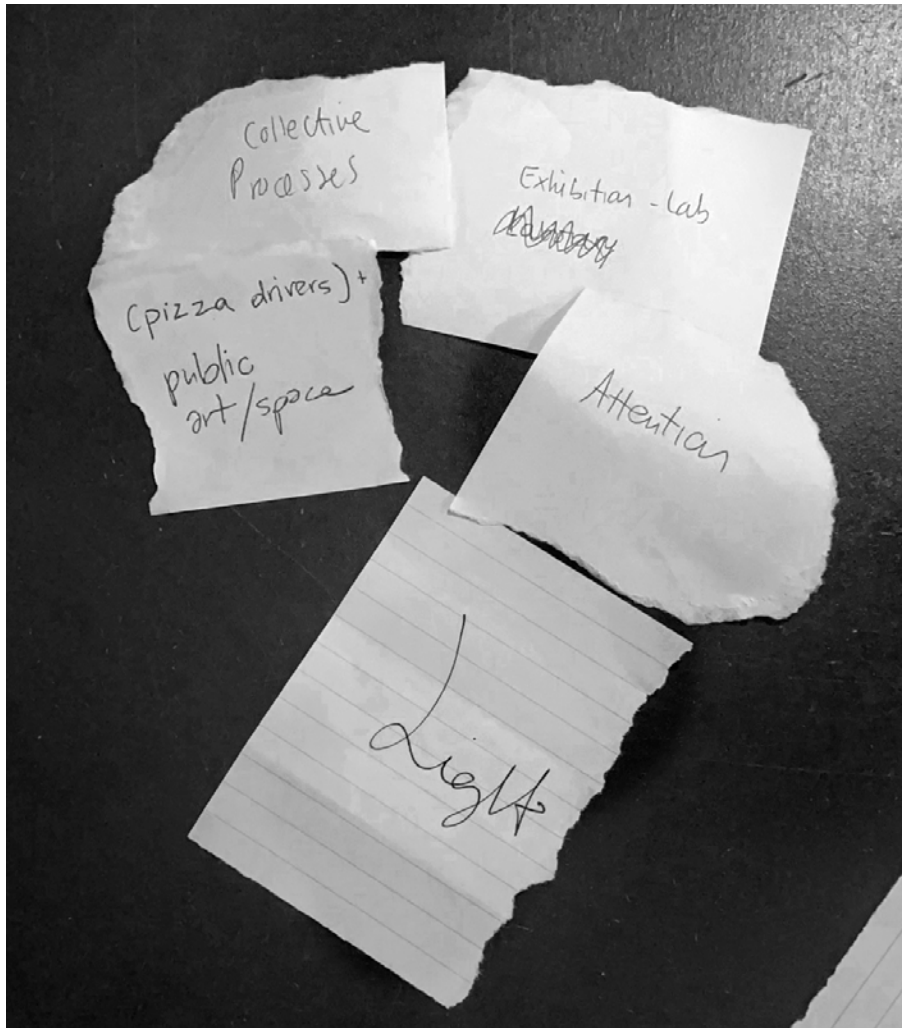 Collective
Processes
Exhibition - Lab
(pizza drivers) +
public
art/space
Attention
Light